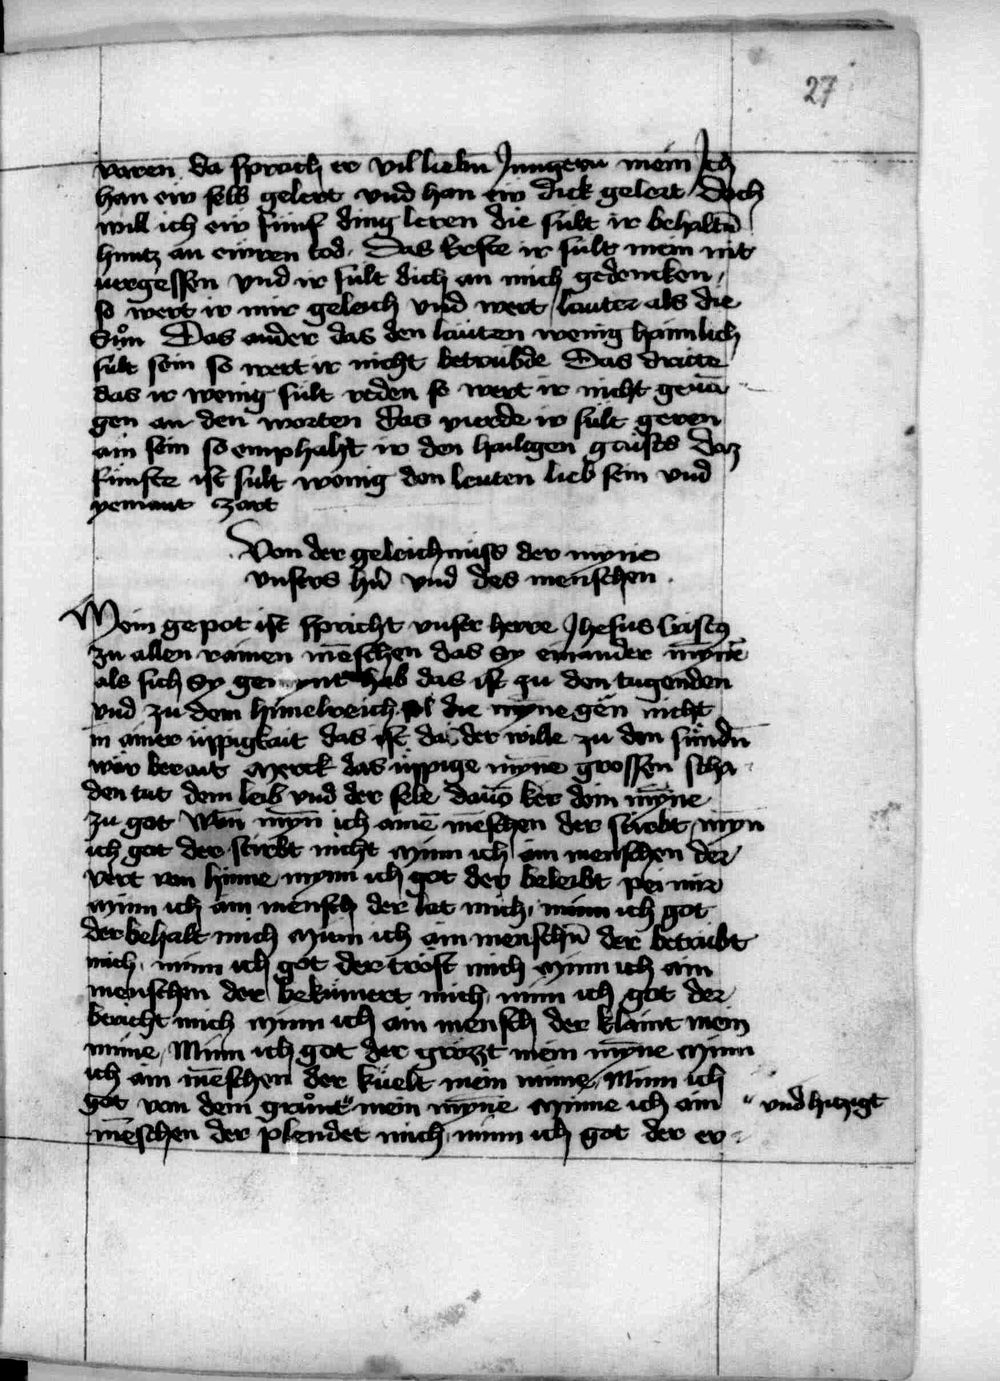 27
varen da sprach er vil liebn Jungern mein Ich
han ew selb gelert vnd han ew dick gelert Doch
will ich ew fünf ding leren die sült ir behaltn̄
huntz an ewren tod. Das Erste ir sült mein nit
uergessen vnd ir sült dich an mich gedencken,
so wert ir mir geleich vnd wert lauter als die
Suͦn Das ander das den läuten wenig haimlich
sült sein so wert ir nicht betrübde Das dritte
das ir wenig sült reden so wert ir nicht geuā
gen an den worten Das vierde ir sült geren
ain sein so emphaht ir den hailigen gaists Daz
fünfte ist sült wenig den leuten lieb sein vnd
yemant zart
Von der geleichnuss der myne
vnsers hn̄ vnd des menschen.
Mein gepot ist spricht vnser herre Jhesus
zu allen rainen mēschen das sy einander myn̄e
als sich sy gemynt hab das ist zu den tugenden
vnd zu dem himelreich sol die myne gen nicht
in ainer üppigkait das ist da der wille zu den sündn̄
wär berait Merck das üppige myne grossen scha
den tut dem leib vnd der sele dauō ker dein mȳne
zu got Wan mȳn ich ainē mēschen der stirbt mȳn
ich got der stirbt nicht Minn ich ain menschen der
vert von hinne mynn ich got der beleibt pei mir
Minn ich ain mensch der let mich, minn ich got
der behalt mich Minn ich ain menschn̄ der betrübt
mich, minn ich got der tröst mich Minn ich ain
menschen der bekümert mich, minn ich got der
bericht mich Minn ich ain mensch der klaint mein
minne, Minn ich got der grözzt mein mȳne Minn
ich ain mēschen der küelt mein minne, Minn ich
got von dem gruͦnt" mein mȳne Minne ich ain " vnd hitzigt
mēschen der plendet mich, minn ich got der er